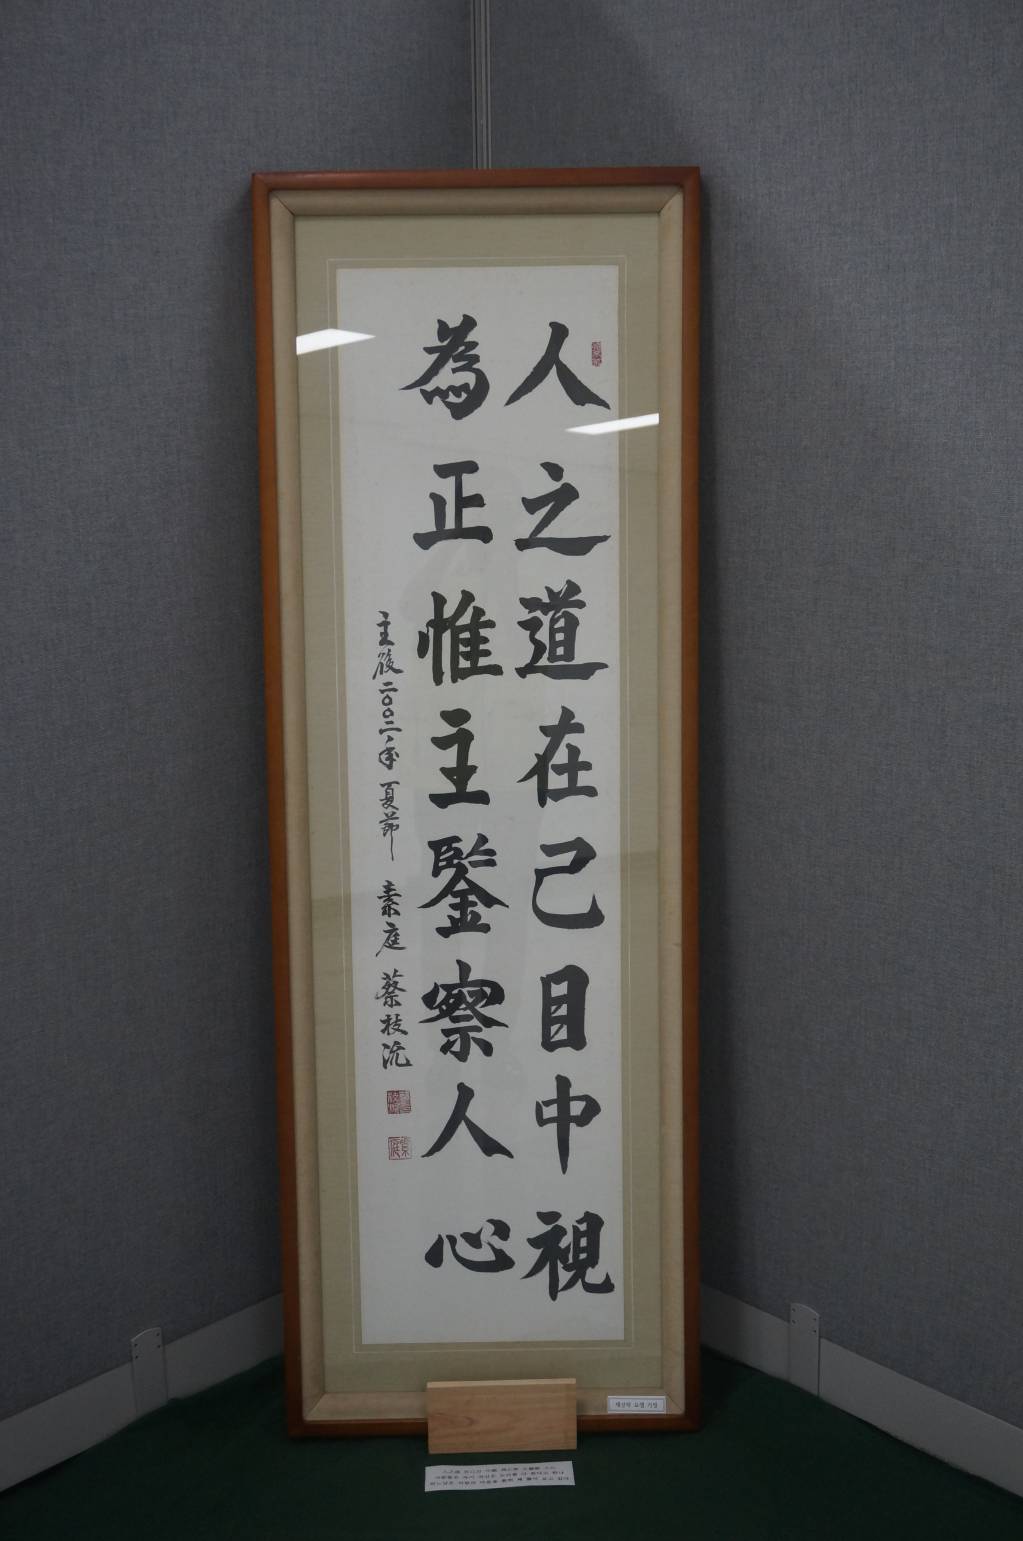 人之道在己目中視
為正惟主鑒察人心
主後二〇〇二年 夏節 素庭 蔡枝沆